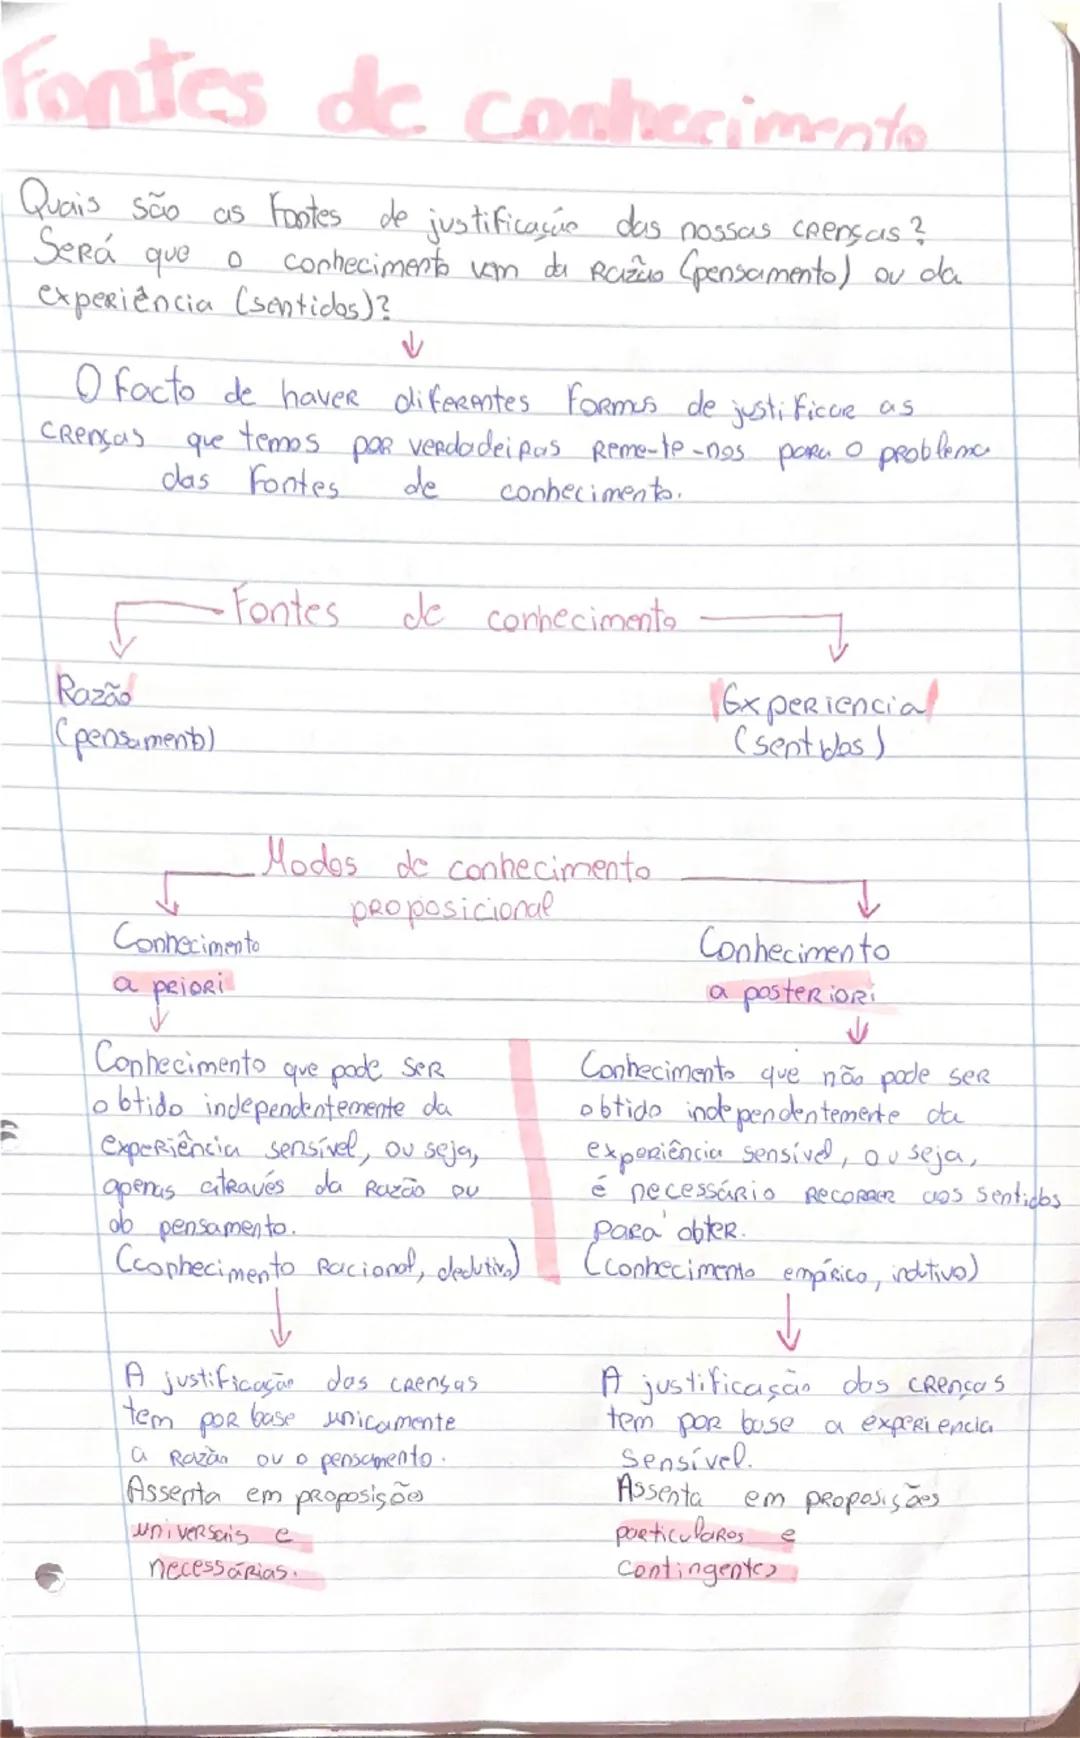 Fontes de conhecimento
Quais são as Fontes de justificação das nossas crenças?
Será que o conhecimento vem da Razão (pensamento) ou da
experiência (sentidos)?
↓
O facto de haver diferentes Formas de justificar as
crenças que temos por verdadeiras Reme-te-nos para o problema
das Fontes de conhecimento.
Fontes de conhecimento
Razão
(pensamento)
Experiencia
(sentidos)
Modos de conhecimento
proposicional
Conhecimento
a priori
↓
Conhecimento que pode ser
obtido independentemente da
experiência sensível, ou seja,
apenas através da Razão ou
do pensamento.
(conhecimento Racional, dedutivo)
↓
A justificação das crenças
tem por base unicamente
a Razão ou o pensamento.
Assenta em proposições
universais e
necessárias.
Conhecimento
a posteriori
↓
Conhecimento que não pode ser
obtido independentemente da
experiência sensível, ou seja,
é necessário Recorrer aos sentidos
para obter.
(conhecimento empírico, indutivo)
↓
A justificação das crenças
tem por base a experiencia
sensível.
Assenta em proposições
particulares e
contingentes